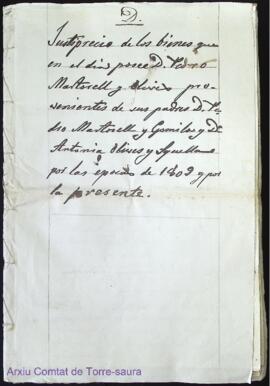 D.
Justiprecio de los bienes que
en el dia posee D. Pedro
Martorell y Olives pro-
venientes de sus padres D. Pe-
dro Martorell y Gomila y Dª
Antonia Olives y Squella
por las épocas de 1802 y por
la presente.
Arxiu Comtat de Torre-saura